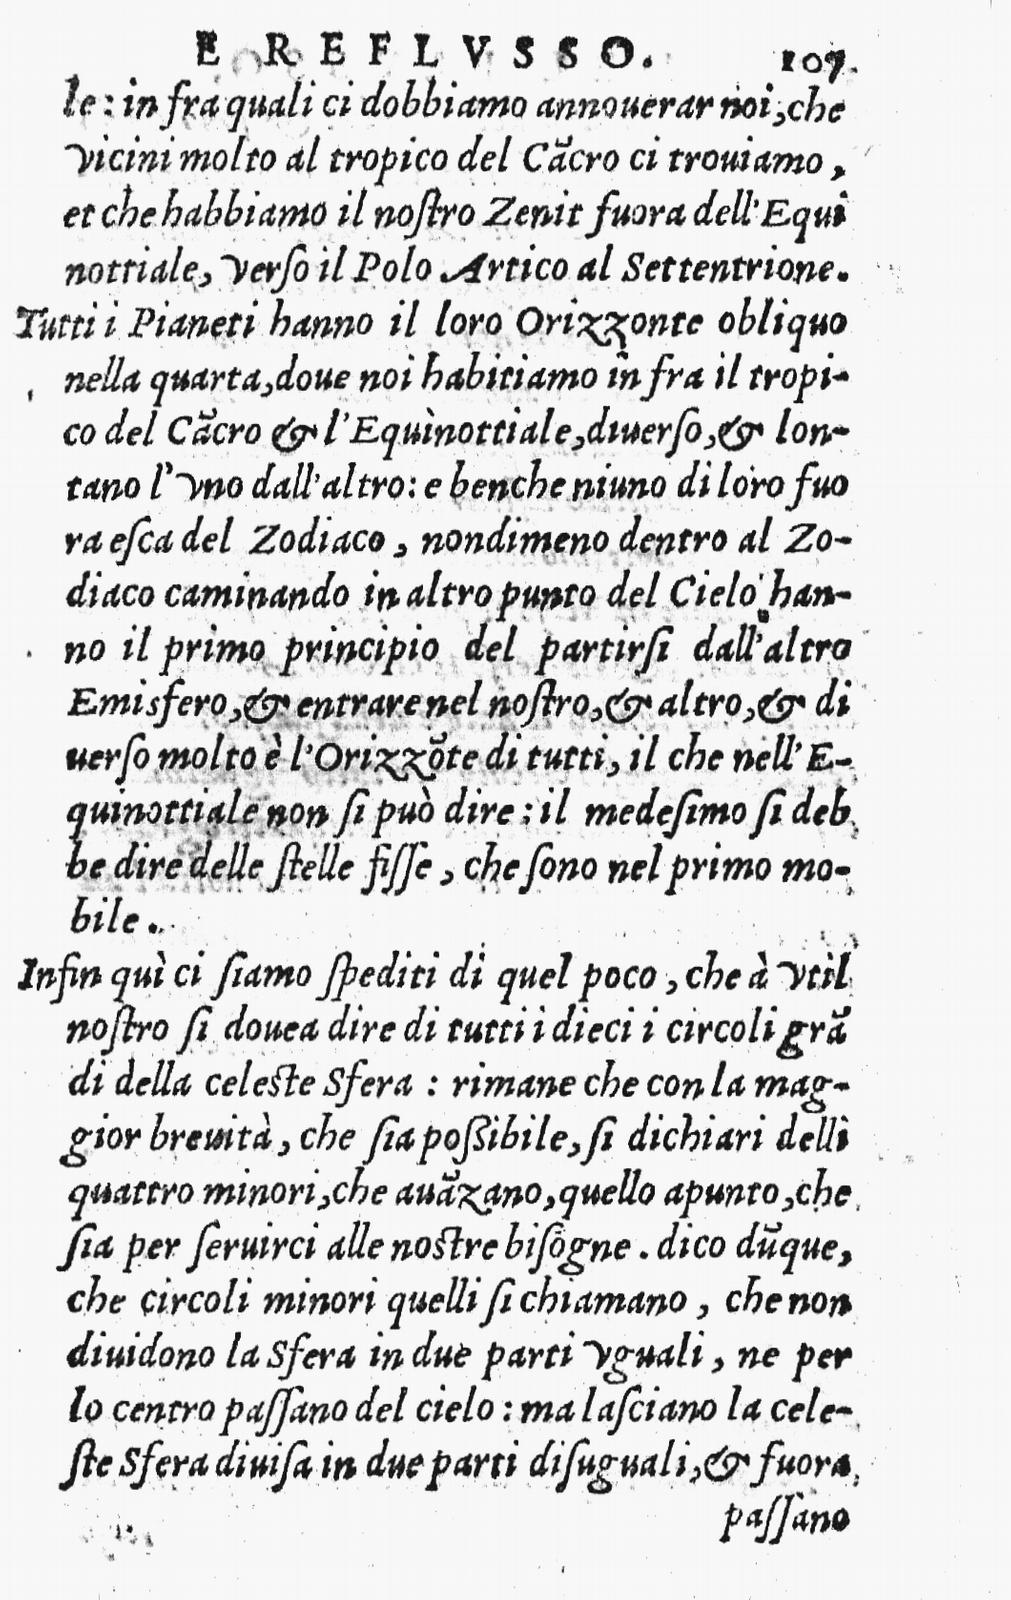 E REFLVSSO. 107.
le: in fra quali ci dobbiamo annouerar noi, che
vicini molto al tropico del Cãcro ci trouiamo,
et che habbiamo il noſtro Zenit fuora dell'Equi
nottiale, verſo il Polo Artico al Settentrione.
Tutti i Pianeti hanno il loro Orizzonte obliquo
nella quarta, doue noi habitiamo in fra il tropi-
co del Cãcro & l'Equinottiale, diuerſo, & lon-
tano l'vno dall'altro: e benche niuno di loro fuo
ra eſca del Zodiaco, nondimeno dentro al Zo-
diaco caminando in altro punto del Cielo han-
no il primo principio del partirſi dall'altro
Emisfero, & entrare nel noſtro, & altro, & di
uerſo molto è l'Orizzõte di tutti, il che nell'E-
quinottiale non ſi può dire: il medeſimo ſi deb
be dire delle ſtelle fiſſe, che ſono nel primo mo-
bile.
Infin quì ci ſiamo ſpediti di quel poco, che à vtil
noſtro ſi douea dire di tutti i dieci i circoli grã
di della celeste Sfera: rimane che con la mag-
gior breuità, che ſia poſsibile, ſi dichiari delli
quattro minori, che auãzano, quello apunto, che
ſia per ſeruirci alle nostre biſogne. dico dũque,
che circoli minori quelli ſi chiamano, che non
diuidono la Sfera in due parti vguali, ne per
lo centro paſſano del cielo: ma laſciano la cele-
ſte Sfera diuiſa in due parti diſuguali, & fuora
paſſano